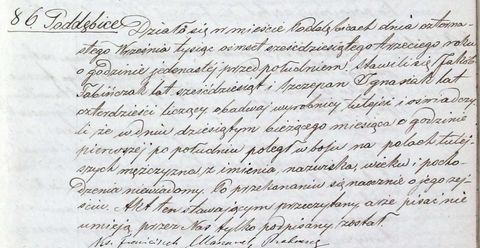 86. Poddębice Działo się w mieście Poddębicach dnia czterna-
stego Września tysiąc ośmset sześćdziesiątego trzeciego roku
o godzinie jedenastej przed południem. Stawili się Jakób
Tabińczak lat sześćdziesiąt i Szczepan Ignasiak lat
czterdzieści liczący obadwaj wyrobnicy tutejsi i oświadczy-
li że w dniu dziesiątym bieżącego miesiąca o godzinie
pierwszej po południu poległ w boju na polach tutej-
szych mężczyzna z imienia, nazwiska, wieku i pocho-
dzenia niewiadomy. Po przekonaniu się naocznie o jego zej-
ściu. Akt ten stawającym przeczytany a że pisać nie
umieją przez Nas tylko podpisany został.
Ks. Franciszek